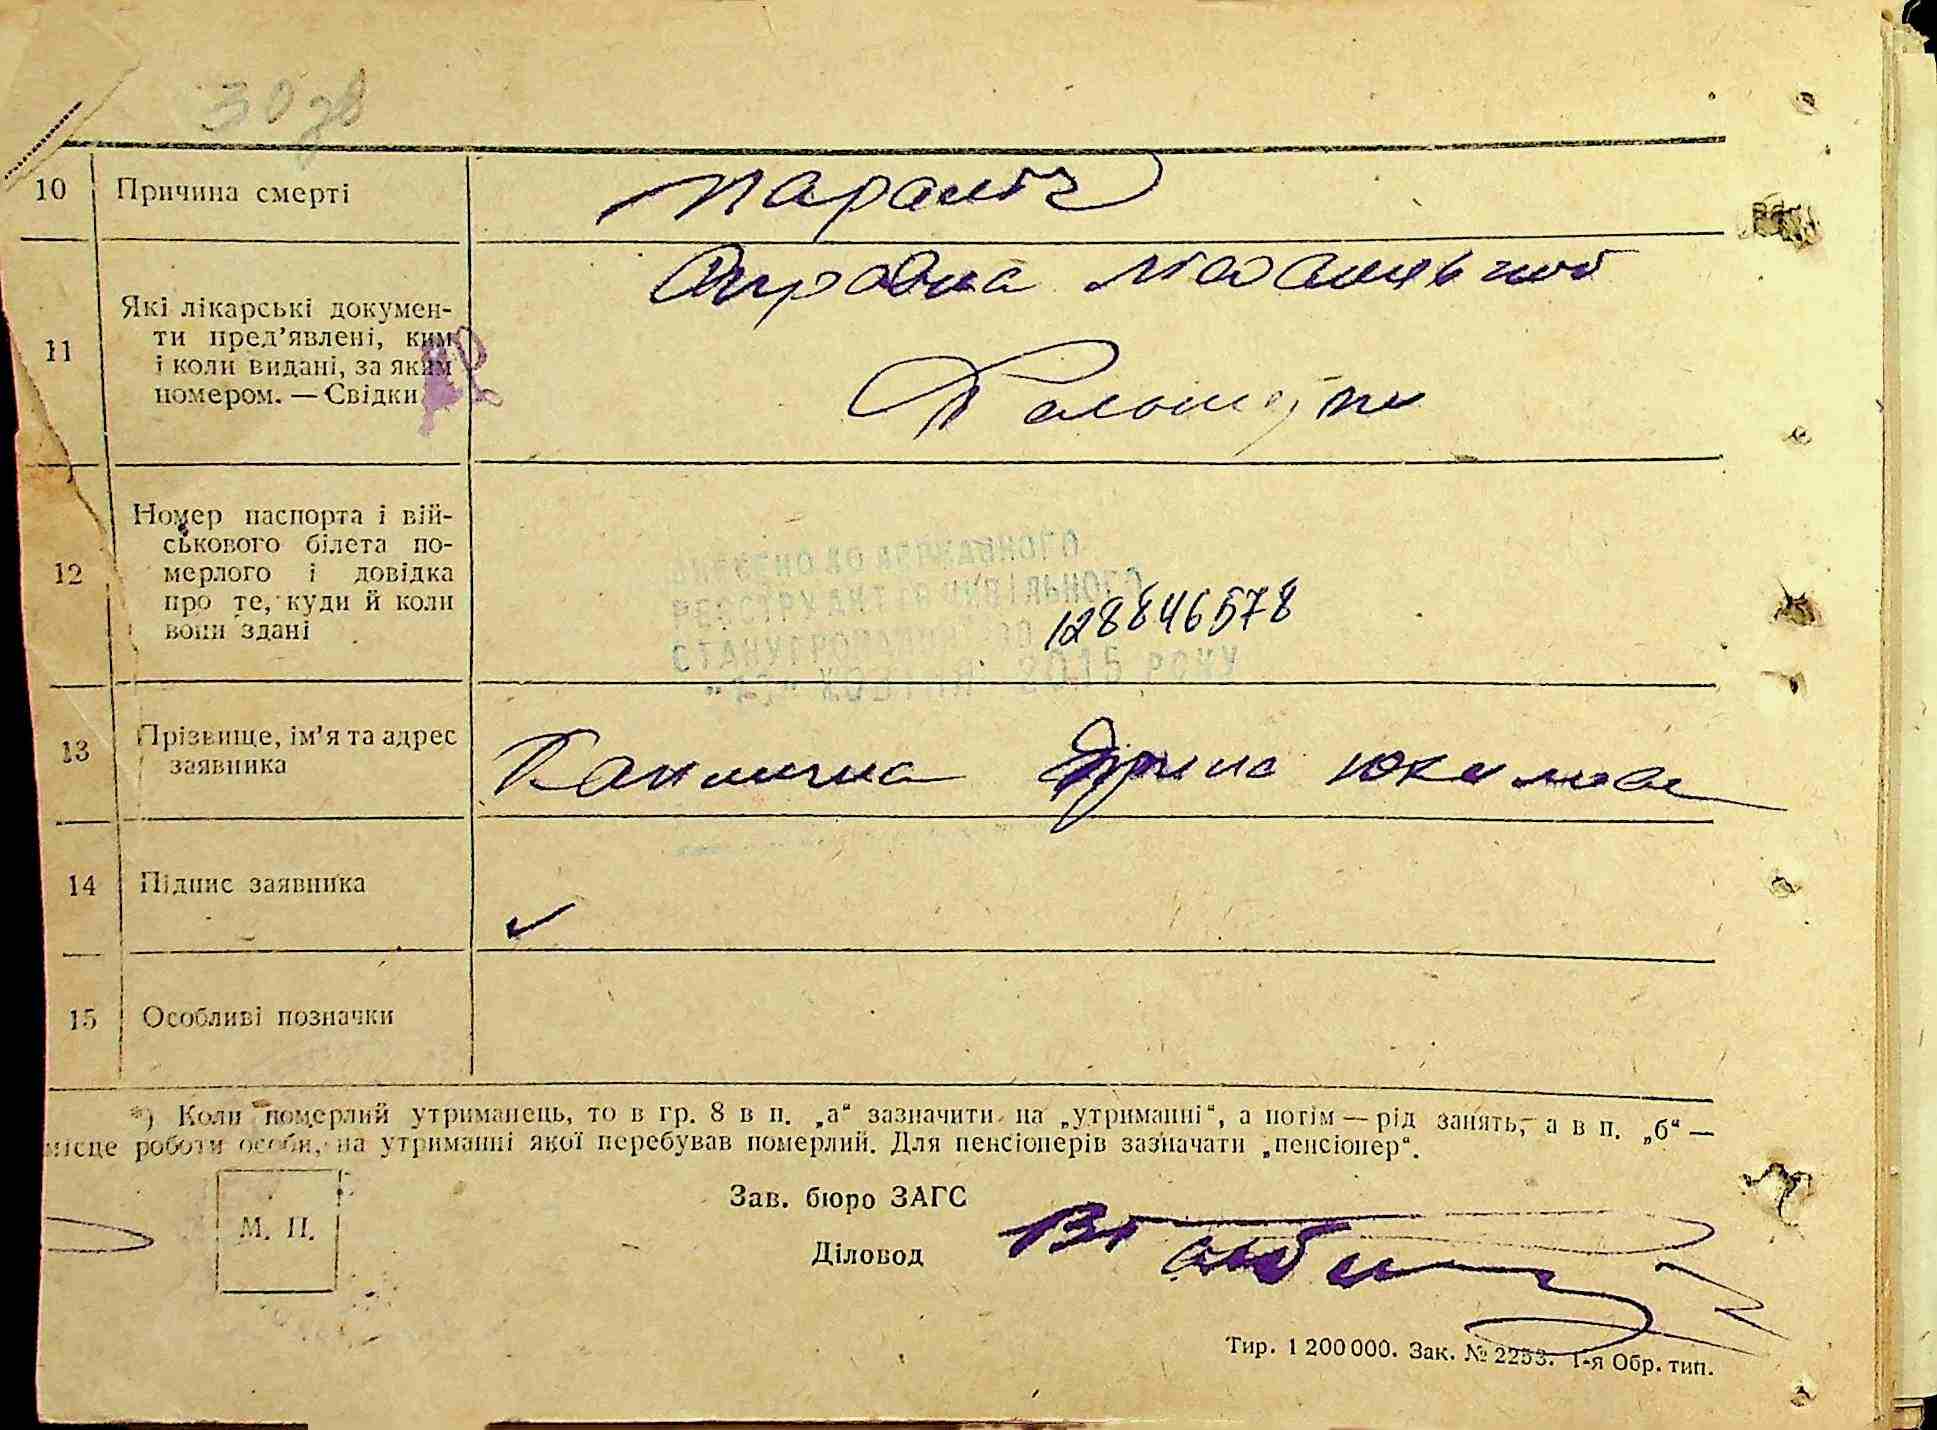 30 зв
10 Причина смерті
параліч
11 Які лікарські докумен-
ти пред’явлені, ким
і коли видані, за яким
номером. — Свідки
12 Номер паспорта і вій-
ськового білета по-
мерлого і довідка
про те, куди й коли
вони здані
ВНЕСЕНО ДО ДЕРЖАВНОГО
РЕЄСТРУ АКТІВ ЦИВІЛЬНОГО
СТАНУ ГРОМАДЯН ЗА 128846578
ЖОВТНЯ 2015 РОКУ
13 Прізвище, ім’я та адрес
заявника
14 Підпис заявника
15 Особливі позначки
*) Коли померлий утриманець, то в гр. 8 в п. „а“ зазначити на „утриманні“, а потім — рід занять, а в п. „б“ —
місце роботи особи, на утриманні якої перебував померлий. Для пенсіонерів зазначати „пенсіонер“.
М. П.
Зав. бюро ЗАГС
Діловод
Тир. 1 200 000. Зак. № 2253. 1-я Обр. тип.